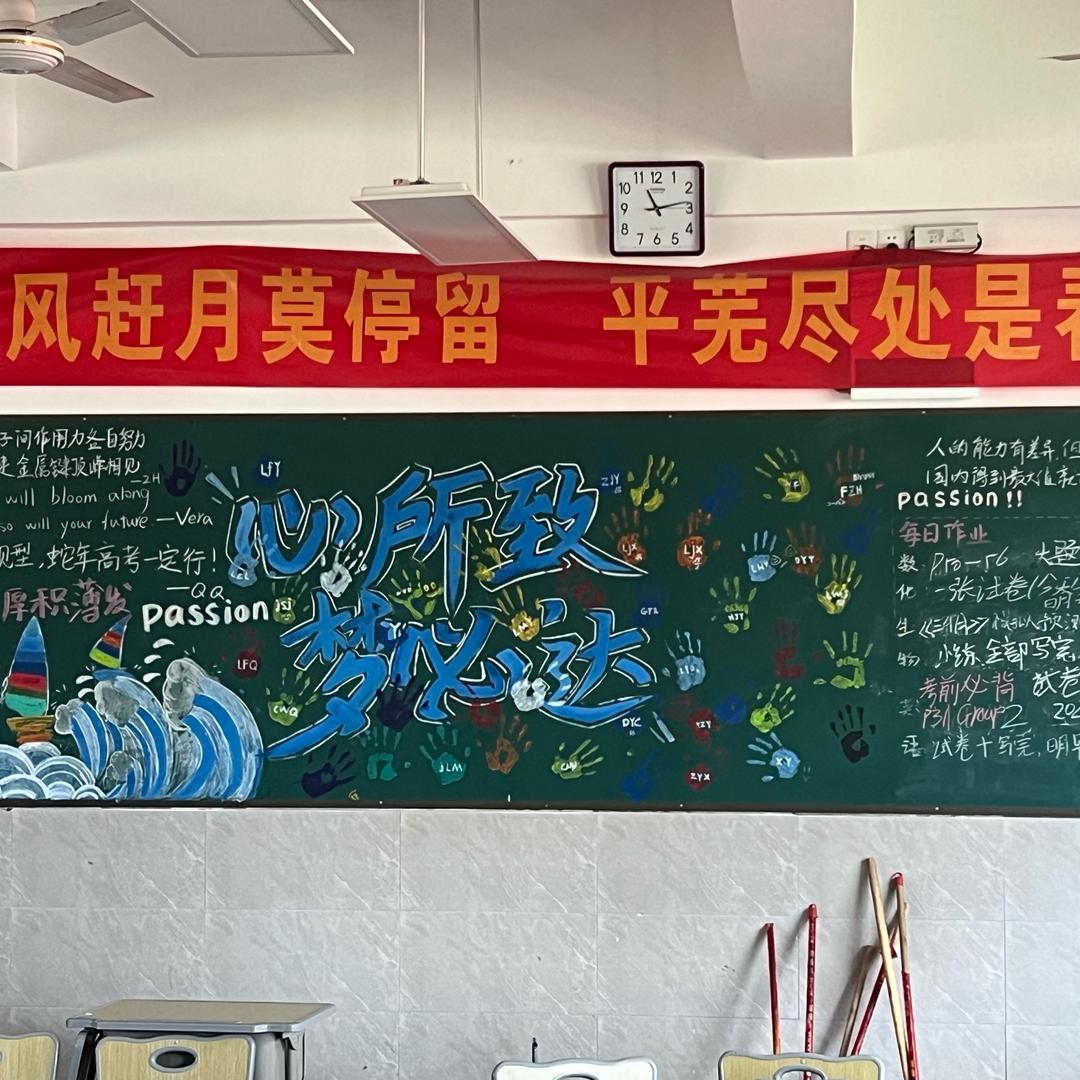 风赶月莫停留 平芜尽处是春
子间作用力各自努力
金属键顶峰相见
—ZH
will bloom along
so will your future —Vera
型,蛇年高考一定行!
—QQ
厚积薄发
passion
心所致
梦必达
LFY
ZJY
FZH
LJX
LJX
LHY
DYY
JSJ
GTR
HJY
LFQ
CWQ
DYC
YZY
JLM
XY
ZYX
人的能力有差异,但
passion!!
每日作业
数 P10-56
化 一张试卷
生
物 小练全部写完
考前必背 试卷
英 P31 Group2 202
语 试卷十写完,明早
12
1
2
3
4
5
6
7
8
9
10
11